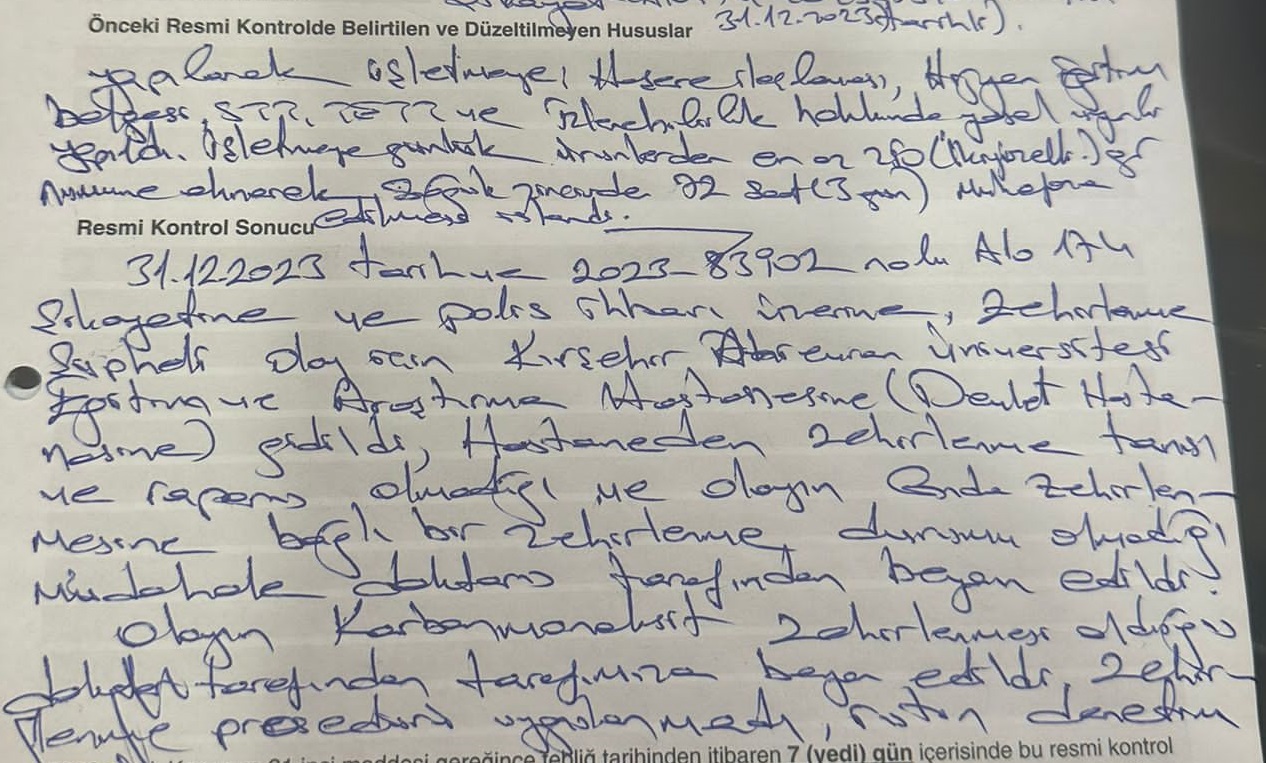 31.12.2023 tarihli).
Önceki Resmi Kontrolde Belirtilen ve Düzeltilmeyen Hususlar
yapılarak işletmeye, Haşere ilaçlaması, Hijyen Eğitim
belgesi, ve İzlenebilirlik hakkında yasal uyarılar
yapıldı. İşletmeye günlük ürünlerden en az 250 gr
numune alınarak, zinciride 72 saat (3 gün) muhafaza
edilmesi istendi.
Resmi Kontrol Sonucu
31.12.2023 tarih ve 2023-83902 nolu Alo 174
Şikayetine ve polis ihbarı üzerine, Zehirlenme
Şüpheli olay için Kırşehir Ahi Evran Üniversitesi
Eğitim ve Araştırma Hastanesine (Devlet Hasta-
nesine) gidildi, Hastaneden zehirlenme tanısı
ve raporu olmadığı ve olayın Gıda zehirlen-
mesine bağlı bir zehirlenme durumu olmadığı
Müdahale doktoru tarafından beyan edildi.
Olayın Karbonmonoksit zehirlenmesi olduğu
doktor tarafından tarafımıza beyan edildi, zehir-
lenme prosedürü uygulanmadı, rutin denetim
maddesi gereğince tebliğ tarihinden itibaren 7 (yedi) gün içerisinde bu resmi kontrol